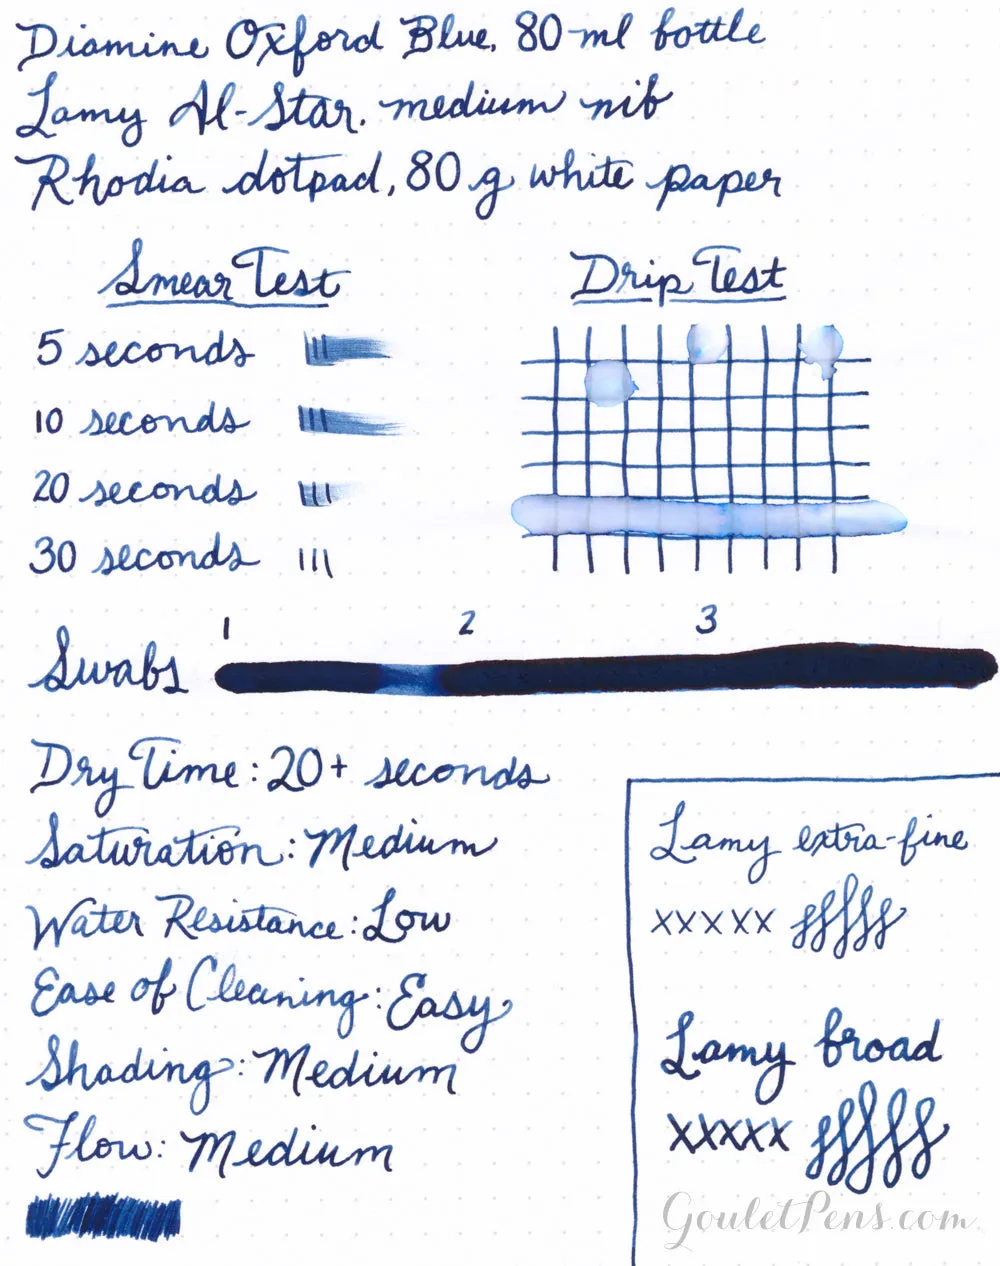 Diamine Oxford Blue, 80-ml bottle
Lamy Al-Star, medium nib
Rhodia dotpad, 80 g white paper
Smear Test
5 seconds
10 seconds
20 seconds
30 seconds
Drip Test
Swabs 1 2 3
Dry Time: 20+ seconds
Saturation: Medium
Water Resistance: Low
Ease of Cleaning: Easy
Shading: Medium
Flow: Medium
Lamy extra-fine
xxxxx
Lamy broad
xxxxx
GouletPens.com